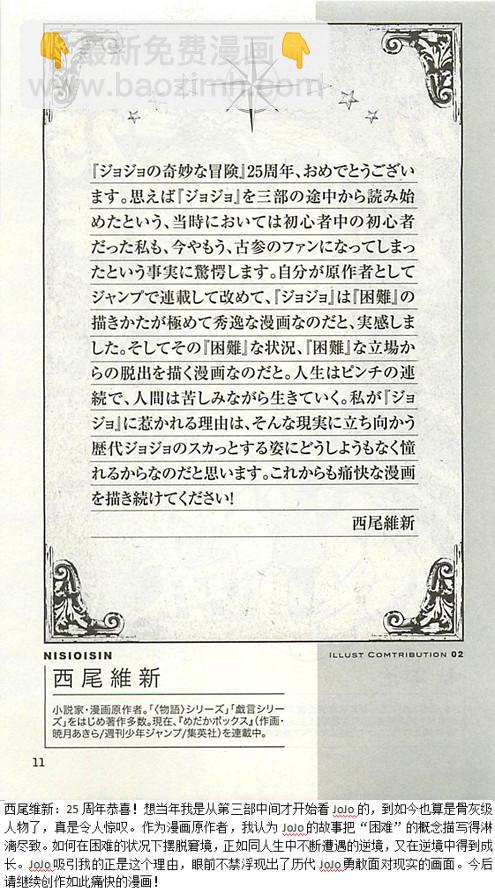 最新免费漫画
www.baozimh.com
『ジョジョの奇妙な冒険』25周年、おめでとうござい
ます。思えば『ジョジョ』を三部の途中から読み始
めたという、当時においては初心者中の初心者
だった私も、今やもう、古参のファンになってしまっ
たという事実に驚愕します。自分が原作者として
ジャンプで連載して改めて、『ジョジョ』は『困難』の
描きかたが極めて秀逸な漫画なのだと、実感しま
した。そしてその『困難』な状況、『困難』な立場か
らの脱出を描く漫画なのだと。人生はピンチの連
続で、人間は苦しみながら生きていく。私が『ジョ
ジョ』に惹かれる理由は、そんな現実に立ち向かう
歴代ジョジョのスカっとする姿にどうしようもなく憧
れるからなのだと思います。これからも痛快な漫画
を描き続けてください!
西尾維新
NISIOISIN
ILLUST COMTRIBUTION 02
西尾維新
小説家・漫画原作者。「〈物語〉シリーズ」「戯言シリー
ズ」をはじめ著作多数。現在、『めだかボックス』(作画・
暁月あきら/週刊少年ジャンプ/集英社)を連載中。
11
西尾维新：25 周年恭喜！想当年我是从第三部中间才开始看 JoJo 的，到如今也算是骨灰级
人物了，真是令人惊叹。作为漫画原作者，我认为 JoJo 的故事把“困难”的概念描写得淋
漓尽致。如何在困难的状况下摆脱窘境，正如同人生中不断遭遇的逆境，又在逆境中得到成
长。JoJo 吸引我的正是这个理由，眼前不禁浮现出了历代 JoJo 勇敢面对现实的画面。今后
请继续创作如此痛快的漫画！